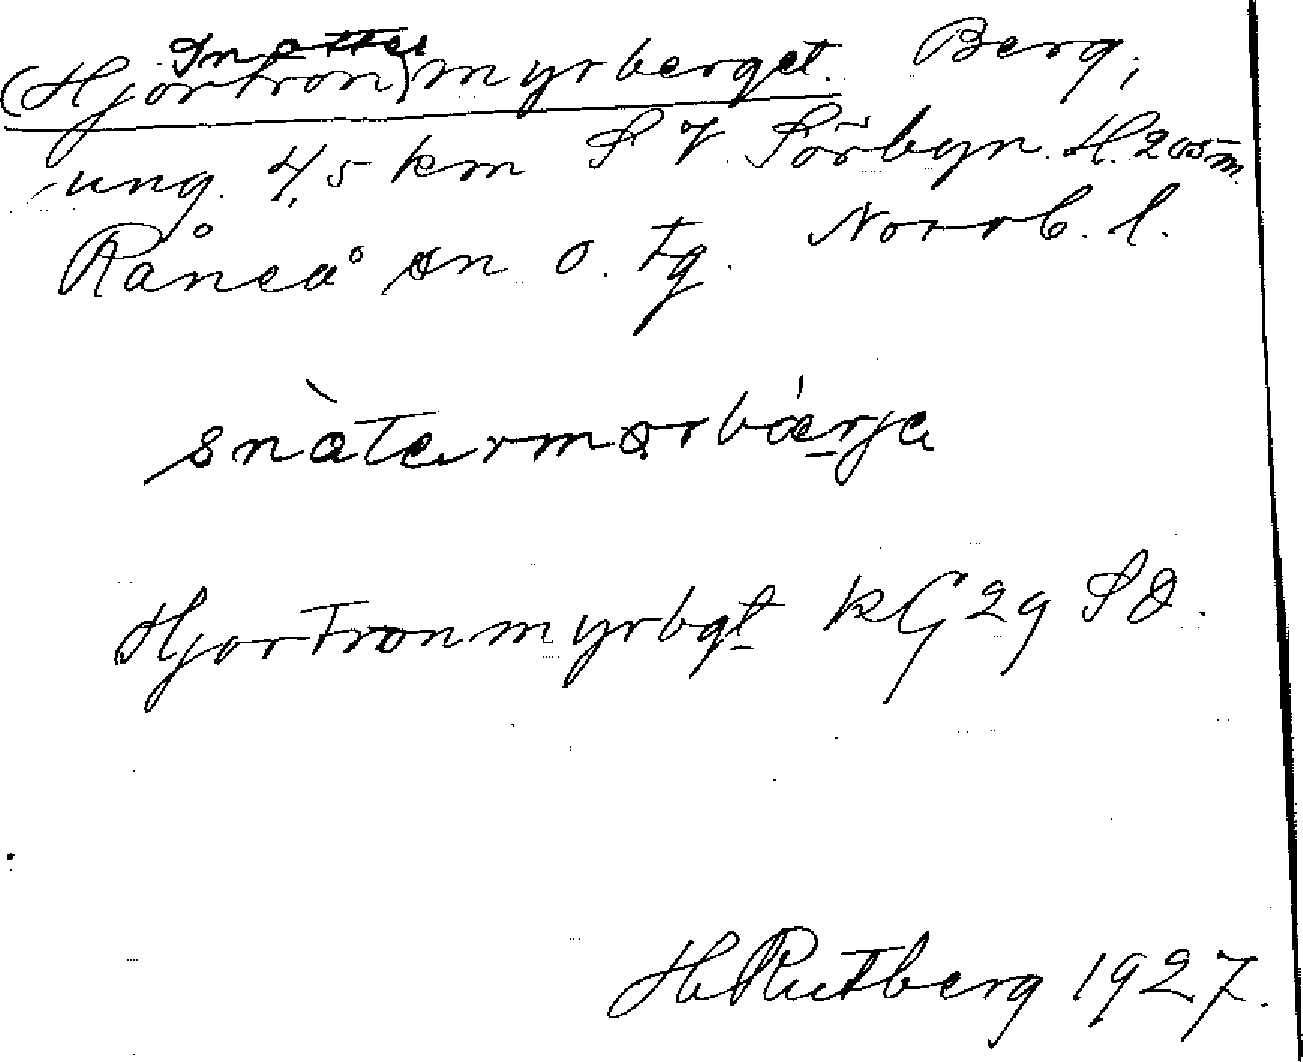 Snatter
(Hjortron)myrberget. Berg,
ung. 4,5 km S V. Sörbyn. H. 205 m.
Råneå sn o. tg. Norrb. l.
snàtermørbærje
Hjortronmyrbgt kG 29 SO.
H Rutberg 1927.